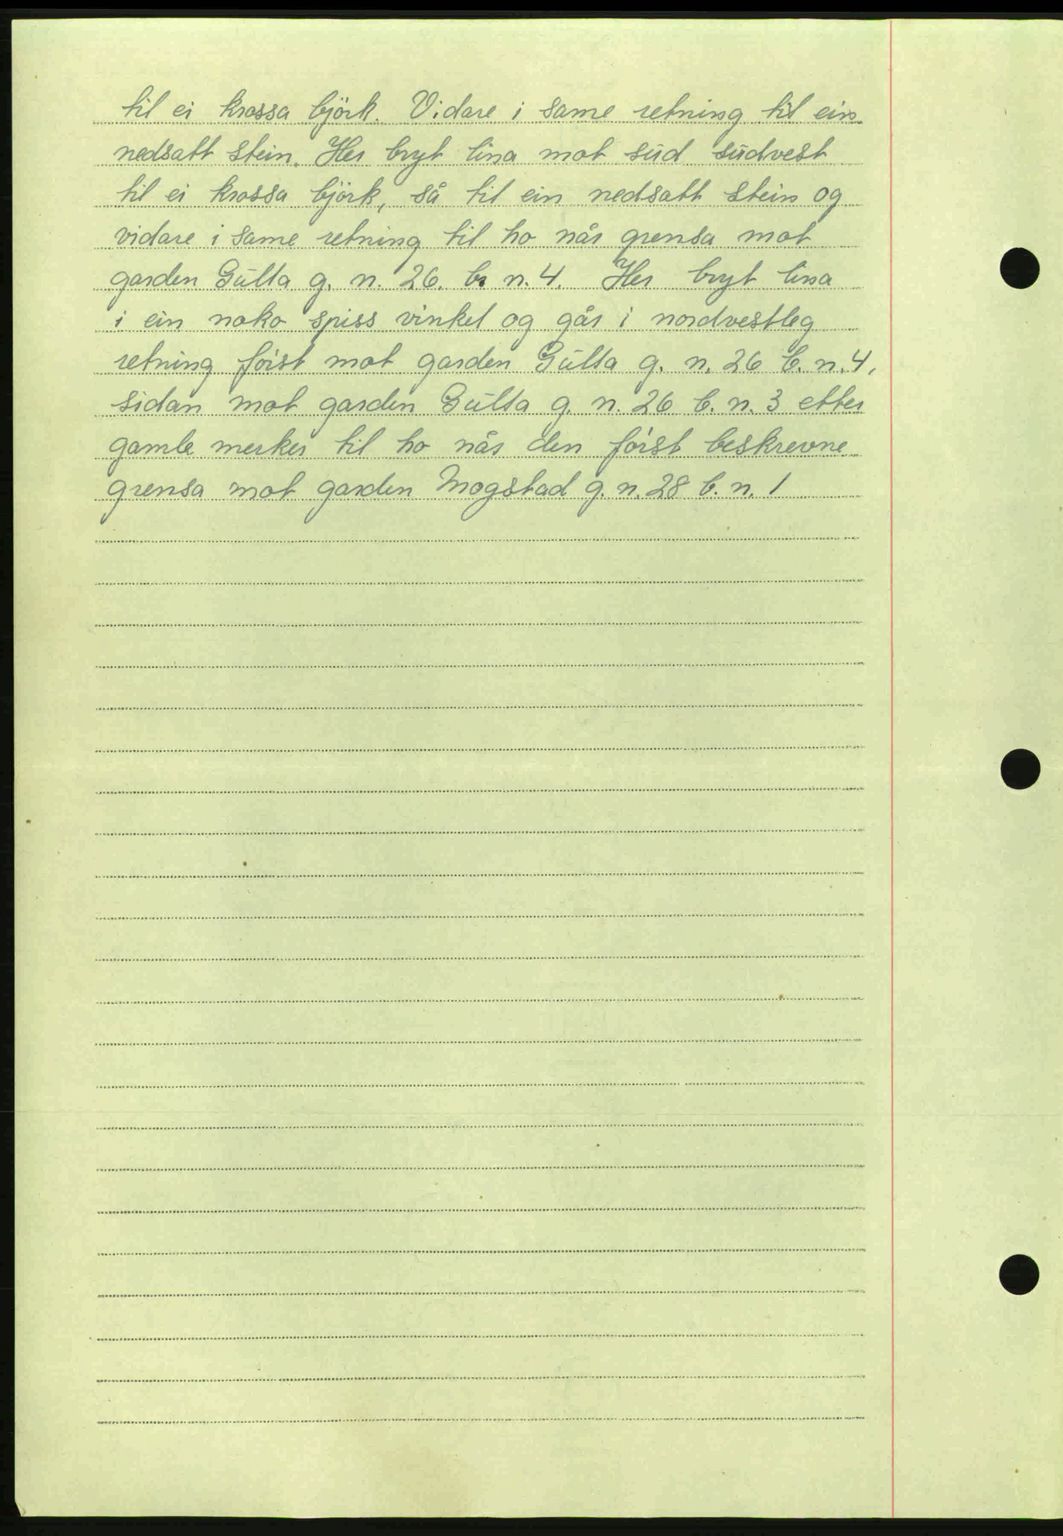 til ei krossa björk. Vidare i same retning til ein
nedsatt stein. Her bryt lina mot süd südvest
til ei krossa björk, så til ein nedsatt stein og
vidare i same retning til ho når grensa mot
garden Gülla g. n. 26. br n. 4. Her bryt lina
i ein noko spiss vinkel og går i nordvestleg
retning först mot garden Gülla g. n. 26 b. n. 4,
sidan mot garden Gülla g. n. 26 b. n. 3 etter
gamle merker til ho når den först beskrevne
grensa mot garden Mogstad g. n. 28 b. n. 1